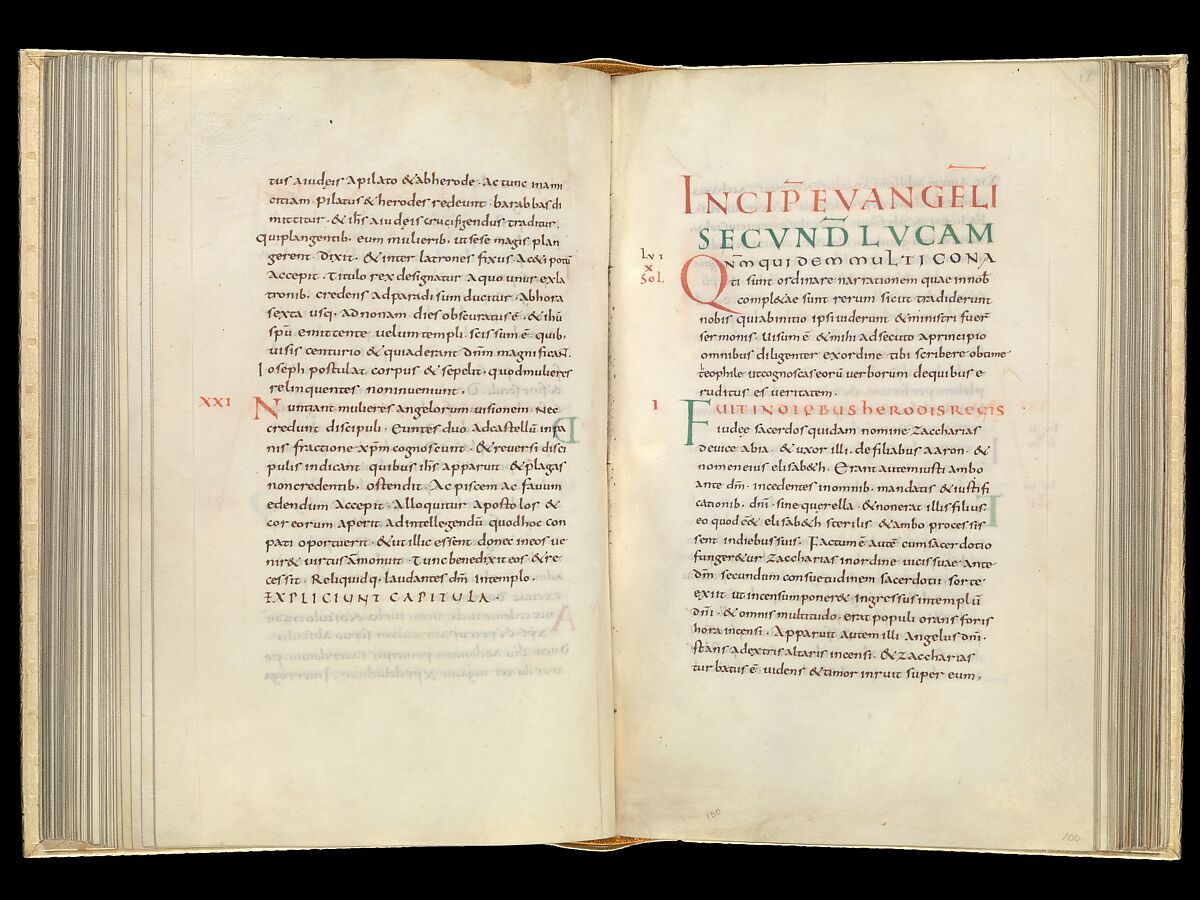 tus a iudęis a pilato & ab herode · ac tunc inami
citiam pilatus & herodes redeunt · barabbas di
mittitur · & ih̄s a iudęis crucifigendus traditur ·
qui plangentib, eum mulierib, ut sese magis plan
gerent dixit · & inter latrones fixus ac&i potū
accepit · titulo rex designatur a quo unus ex la
tronib, credens ad paradisum ducitur · ab hora
sexta usq, ad nonam dies obscuratus ē · & ihū
sp̄u emittente velum templi scissum ē quib,
uisis centurio & qui aderant dn̄m magnificaN̄.
Ioseph postulat corpus & sepelit, quod mulieres
relinquentes non inveniunt,
XXI
Nuntiant mulieres angelorum visionem nec
credunt discipuli · Euntes duo ad castellū in pa
nis fractione xp̄m cognoscunt · & reversi disci
pulis indicant quibus ih̄s apparuit & plagas
non credentib, ostendit · Ac piscem ac favum
edendum accepit · Alloquitur apostolos &
cor eorum aperit ad intellegendū quod hoc con
pati oportuerit · & ut illic essent donec in eos ve
nir& virtus āmonuit · Tunc benedixit eos & re
cessit · Reliquid q, laudantes dm̄ in templo ·
EXPLICIUNT CAPITULA ·
INCIP̄ EVANGELI
SECVND̄ LVCAM
LVI
X
SOL
Qn̄m quidem multi cona
ti sunt ordinare narrationem quae in nob̄
compl&ae sunt rerum sicut tradiderunt
nobis qui ab initio ipsi viderunt & ministri fuer̄
sermonis · Visum ē & mihi adsecuto a principio
omnibus diligenter ex ordine tibi scribere obtime
theophile ut cognoscas eorū verborum de quibus e
ruditus es veritatem ·
I
FUIT IN DIEBUS herodis regis
iudęę sacerdos quidam nomine zaccharias
de vice abia · & uxor illi, de filiabus aaron · &
nomen eius elisab&h · Erant autem iusti ambo
ante dm̄ · incedentes in omnib, mandatis & iustifi
cationib, dn̄i · sine querella · & non erat illis filius
eo quod ē& elisab&h sterilis · & ambo processis
sent in diebus suis · Factum ē autē cum sacerdotio
funger&ur zaccharias in ordine vicis suae ante
dm̄ secundum consuetudinem sacerdotii sorte
exiit ut incensum poner& ingressus in templū
dn̄i · & omnis multitudo, erat populi orans foris
hora incensi · Apparuit autem illi angelus dn̄i ·
stans a dextris altaris incensi · & zaccharias
turbatus ē videns & timor inruit super eum,
100
100